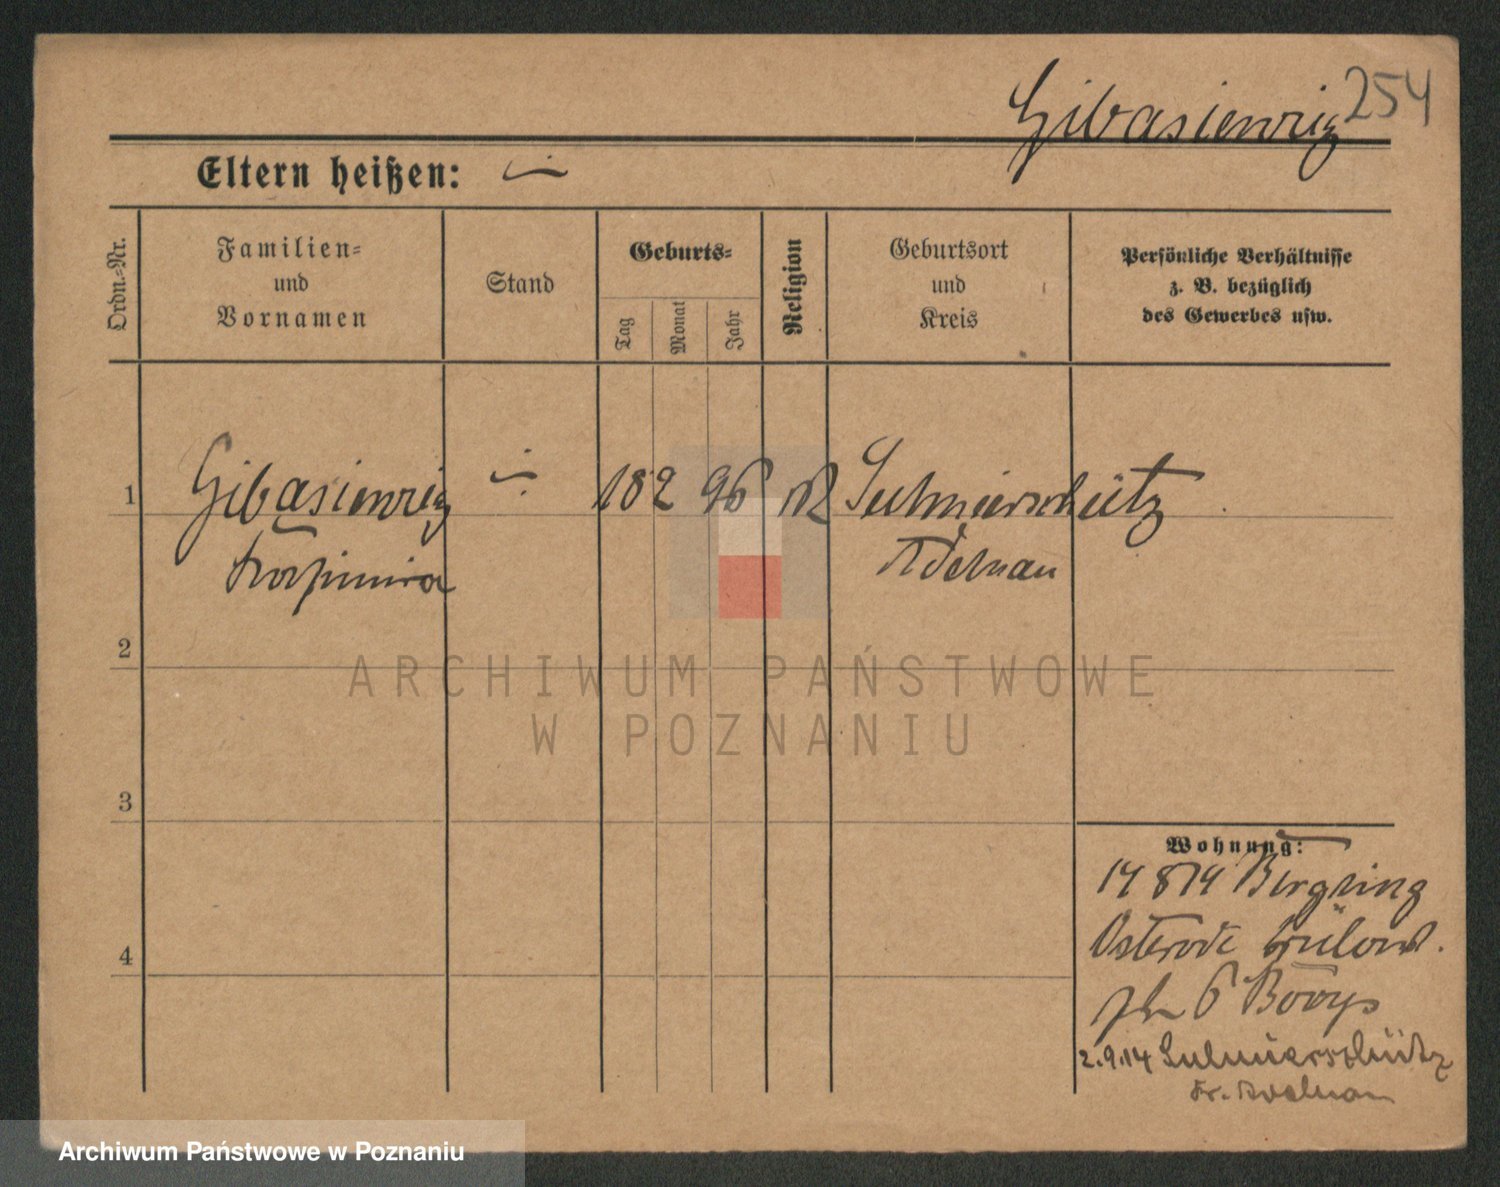 Gibasiewicz 254
Eltern heißen: –
Ordn.-Nr.
Familien-
und
Vornamen
Stand
Geburts-
Tag
Monat
Jahr
Religion
Geburtsort
und
Kreis
Persönliche Verhältnisse
z. B. bezüglich
des Gewerbes usw.
1 Gibasiewicz – 18 2 96 K Sulmierschütz
Kazimira Adelnau
2
ARCHIWUM PAŃSTWOWE
W POZNANIU
3
Wohnung:
14 8 14 Bergring
Osterode
4
6
2.9.14 Sulmierschütz
Kr. Adelnau
Archiwum Państwowe w Poznaniu